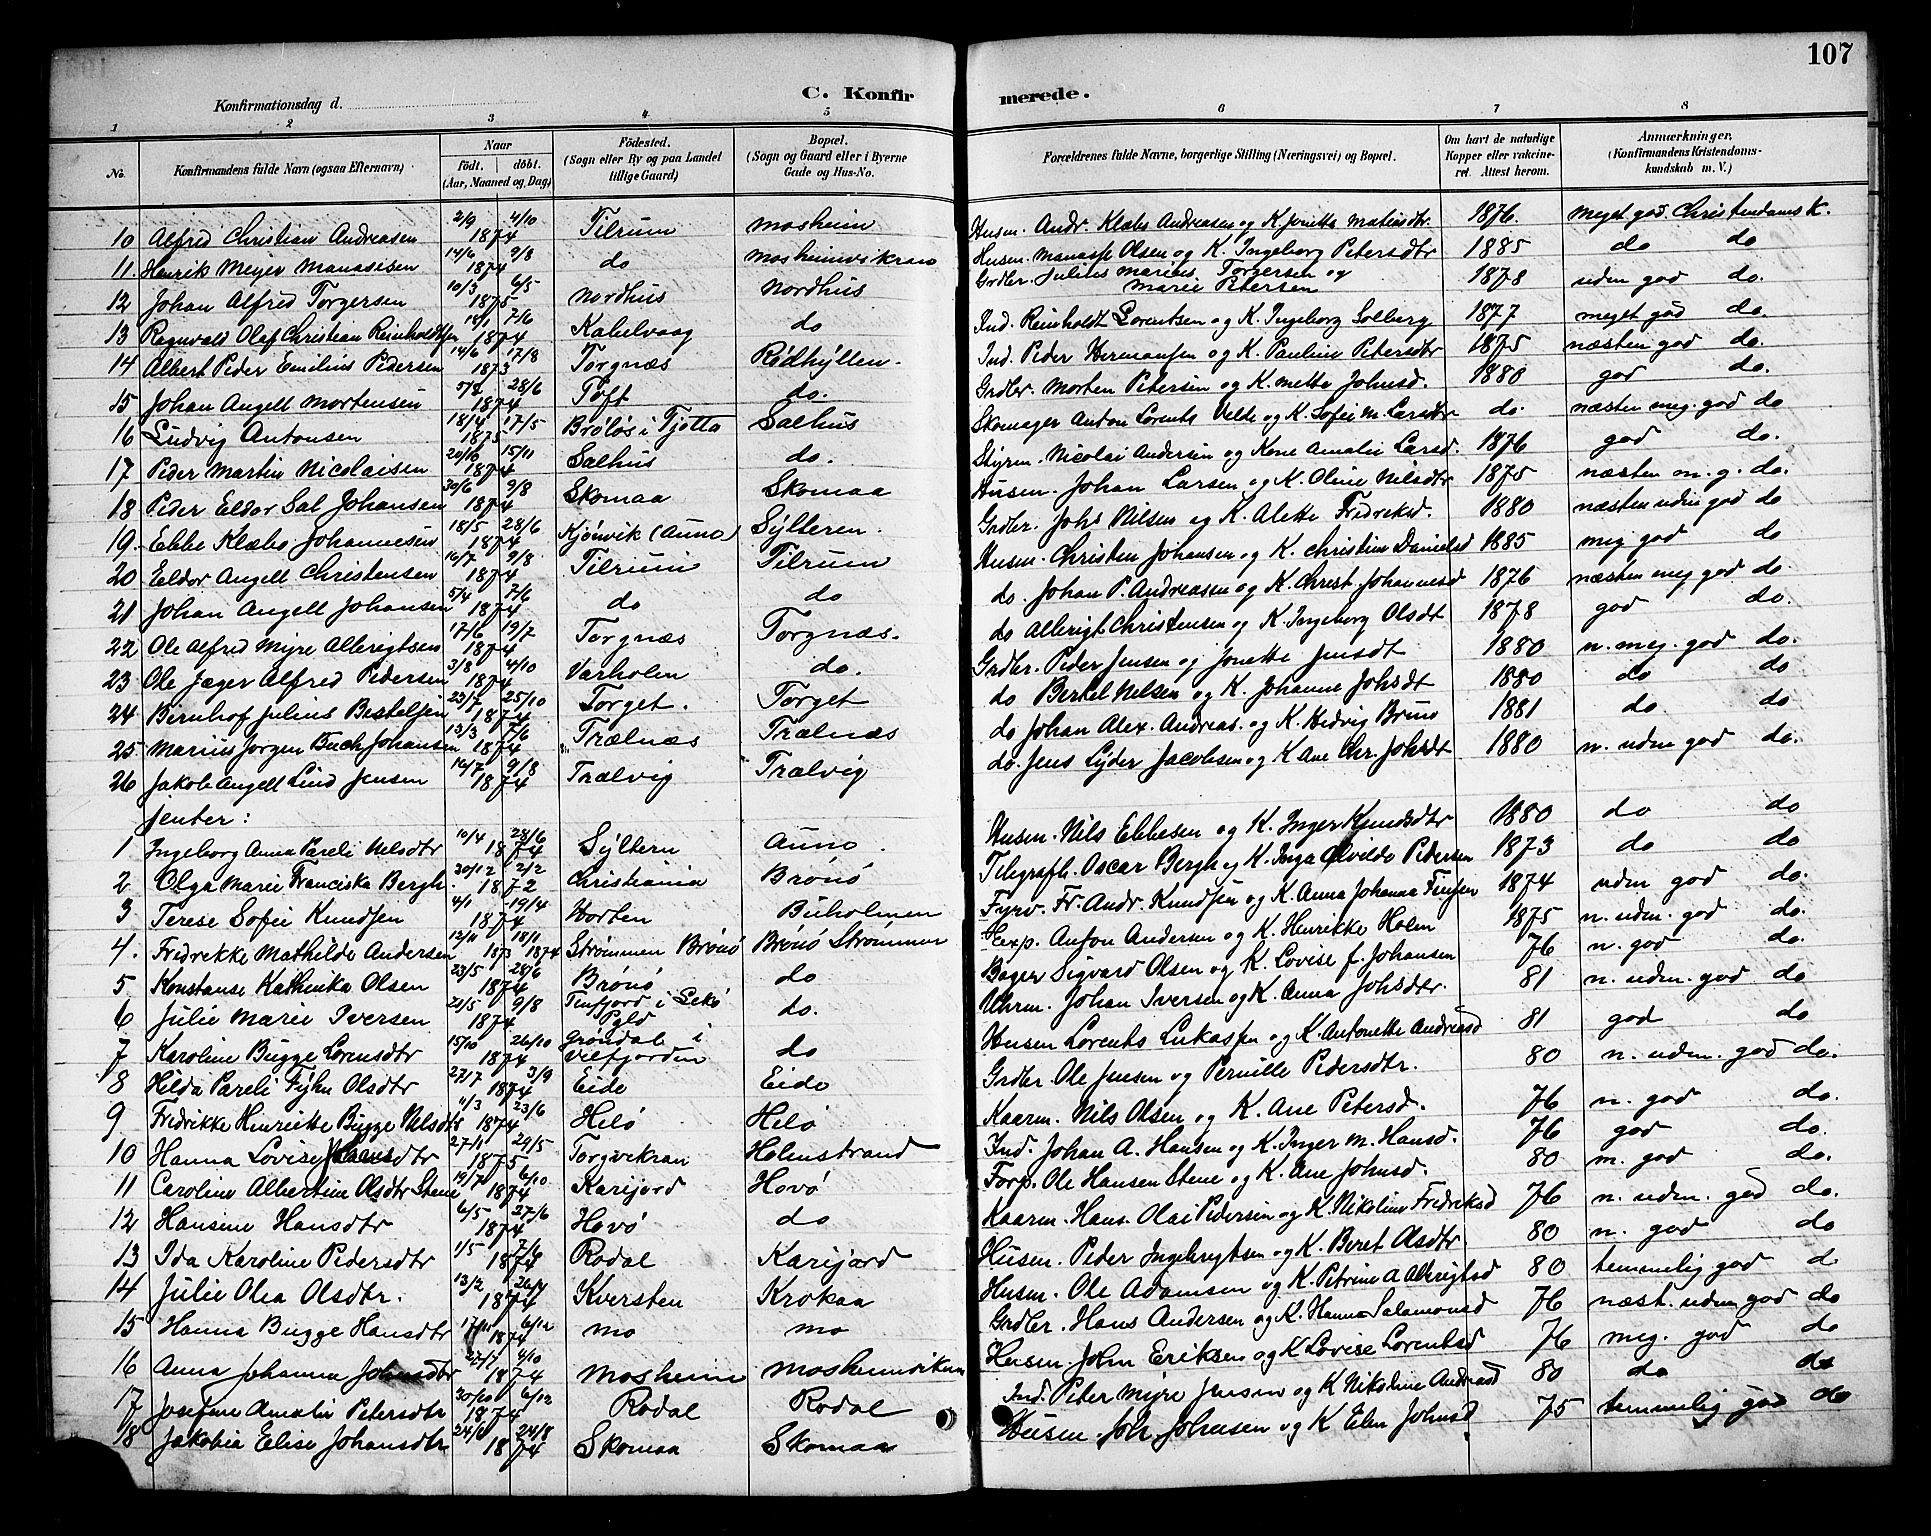 107
Konfirmationsdag d.
C. Konfirmerede.
1 2 3 4 5 6 7 8
No. Konfirmandens fulde Navn (ogsaa Efternavn) Naar født. døbt. (Aar, Maaned og Dag) Fødested. (Sogn eller By og paa Landet tillige Gaard) Bopæl. (Sogn og Gaard eller i Byerne Gade og Hus-No. Forældrenes fulde Navne, borgerlige Stilling (Næringsvei) og Bopæl. Om havt de naturlige Kopper eller vakcineret. Attest herom. Anmærkninger. (Konfirmandens Kristendomskundskab m. V.)
10 Alfred Christian Andreasen 2/9 4/10 1874 Tilrum Mosheim Husm. Andr. Klæbo Andreasen og K. Jonette Matiasdtr. 1876. meget god Christendomsk.
11. Henrik Meyer Manassisen 14/6 9/8 1874 do Mosheimvikran Husm. Manasse Olsen og K. Ingeborg Petersdtr 1885 do do
12 Johan Alfred Torgersen 10/3 6/5 1875 Nordhus Nordhus Grdbr. Julius Marius Torgersen og Marie Petersen 1878 uden god do.
13 Ragnvald Olaf Christian Reinholdtsen 7/6 1874 Kabelvaag do Ind. Reinholdt Lorentsen og K. Ingeborg Solberg 1877 meget god do.
14 Albert Peder Emilius Pedersen 14/6 17/8 1873 Torgnæs Rødhyllen. Ind. Peder Hermansen og K. Pauline Petersdtr 1875 næsten god do.
15 Johan Angell Mortensen 5/8 28/6 1874 Toft do. Grdbr. Morten Petersen og K. Mette Johnsd. 1880 god do.
16 Ludvig Antonsen 18/4 17/5 1875 Brøløs i Tjøtta Salhus Skomager Anton Lorents Velte og K. Sofie M. Larsdtr do. næsten meg. god do
17 Peder Martin Nicolaisen 15/11 1874 Salhus do. Styrm. Nicolai Andersen og Kone Amalie Larsd. 1876 god do.
18 Peder Eldor Sal Johansen 30/6 9/8 1874 Skomaa Skomaa Husm. Johan Larsen og K. Oline Nilsdtr 1875 næsten m. g. do.
19. Ebbe Klæbo Johannesen 18/5 28/6 1874 Kjønvik (Auno) Sylteren. Grdbr. Johs Nilsen og K. Alette Fredriksd. 1880 næsten uden god do
20 Eldor Angell Christensen 16/7 9/8 1874 Tilrum Tilrum Husm. Christen Johansen og K. Christine Danielsd 1885 meg god do
21 Johan Angell Johansen 5/4 7/6 1874 do do do. Johan P. Andreasen og K. Christ. Johannesd 1876 næsten meg god do
22 Ole Alfred Myre Albrigtsen 17/6 19/7 1874 Torgnæs Torgnæs. do Albrigt Christensen og K. Ingeborg Olsdt 1878 god do.
23 Ole Jæger Alfred Pedersen 3/8 4/10 1874 Varholm do. Grdbr. Peder Jensen og Jonette Jensdt 1880 n. meg. god do.
24 Bernhof Julius Bertelsen 23/7 25/10 1874 Torget. Torget do Bertel Nelsen og K. Johanne Johsdt 1880 do do
25 Marius Jørgen Buch Johansen 13/3 7/6 1874 Trælnæs Trælnæs do Johan Alex. Andreas. og K. Hedvig Bruno 1881 do do
26 Jakob Angell Lind Jensen 16/7 9/8 1874 Trælvig Trælvig do. Jens Lyder Jacobsen og K Ane Chr. Johsdt 1880 n. uden god do.
Jenter:
1 Ingeborg Anna Pareli Nelsdtr 10/4 28/6 1874 Syltern Auno. Husm. Nils Ebbesen og K. Inger Knudsdtr 1880 do do
2 Olga Marie Franciska Bergh. 30/12 2/2 1872 Christiania Brønø Telegrafb. Oscar Bergh og K. Inga Alvilde Pedersen 1873 do do
3 Terese Sofie Knudsen 4/1 19/4 1874 Horten Buholmen Fyrv. Fr. Andr. Knudsen og K. Anna Johanna Finsen 1874 uden god do.
4. Fredrikke Mathilde Andersen 12/11 18/1 1873 1874 Strømmen Brønø Brønø Strømmen Exp. Anton Andersen og K. Henrikke Holm 1875 n. uden. god do.
5 Konstanse Kathinka Olsen 23/5 28/6 1874 Brønø do Bager Sigvard Olsen og K. Lovise f. Johansen 76 n. god do.
6 Julie Marie Iversen 9/8 1874 Tenfjord i Lekø Pgld do. Uhrm. Johan Iversen og K. Anna Johsdtr. 81 n. uden. god do
7 Karoline Bugge Lorensdtr 15/10 26/10 1874 Grøndal i Vilfjorden do Husm Lorents Lukassen og K. Antonette Andreasd 81 god do
8 Hilda Pareli Fyhn Olsdtr 27/7 3/9 1874 Eide Eide Grdbr. Ole Jensen og Pernille Pedersdtr. 80 n. uden. god do.
9 Fredrikke Henriette Bugge Nelsdtr 11/3 23/6 1874 Helø Helø Kaarm. Nils Olsen og K. Ane Petersd. 76 n. god do.
10 Hanna Lovise Johansdtr 27/11 29/5 1875 Torgvikran Holmstrand Ind. Johan A. Hansen og K. Inger M. Hansd. 76 god do.
11 Caroline Albertine Olsdtr Stene 19/7 6/10 1874 Karijord Hovø Forp. Ole Hansen Stene og K. Ane Johnsd. 80 m. god do.
12 Hansine Hansdtr 6/5 27/6 1874 Hovø do Kaarm. Hans Olai Pedersen og K. Nikoline Fredriksd 76 n. uden. god do.
13 Ida Karoline Pedersdtr 1/5 7/6 1874 Rodal Karijord Husm. Peder Ingebrigtsen og K. Beret Olsdtr. 80 n. god do
14 Julie Olea Olsdtr. 13/2 1874 Kversten Krokaa Husm. Ole Adamsen og K. Petrine A Albrigtsd 80 temmelig god d
15 Hanna Bugge Hansdtr 17/11 6/12 1874 Mo Mo Grdbr. Hans Andersen og K. Hanna Salamonsd 76 næst. uden god do
16 Anna Johanna Johnsdtr 27/7 4/10 1874 Mosheim Mosheimvikran Husm John Eriksen og K Lovise Lorentsd 76 meg. god do
17 Josefine Amalie Petersdtr 30/10 6/12 1874 Rodal Rodal Ind. Peter Myre Jensen og K Nikoline Andreasd 80 do do
18 Jakobia Elise Johansdtr 24/8 1874 Skomaa Skomaa Husm. Joh. Johnsen og K Elen Johnsd 75 temmelig god do